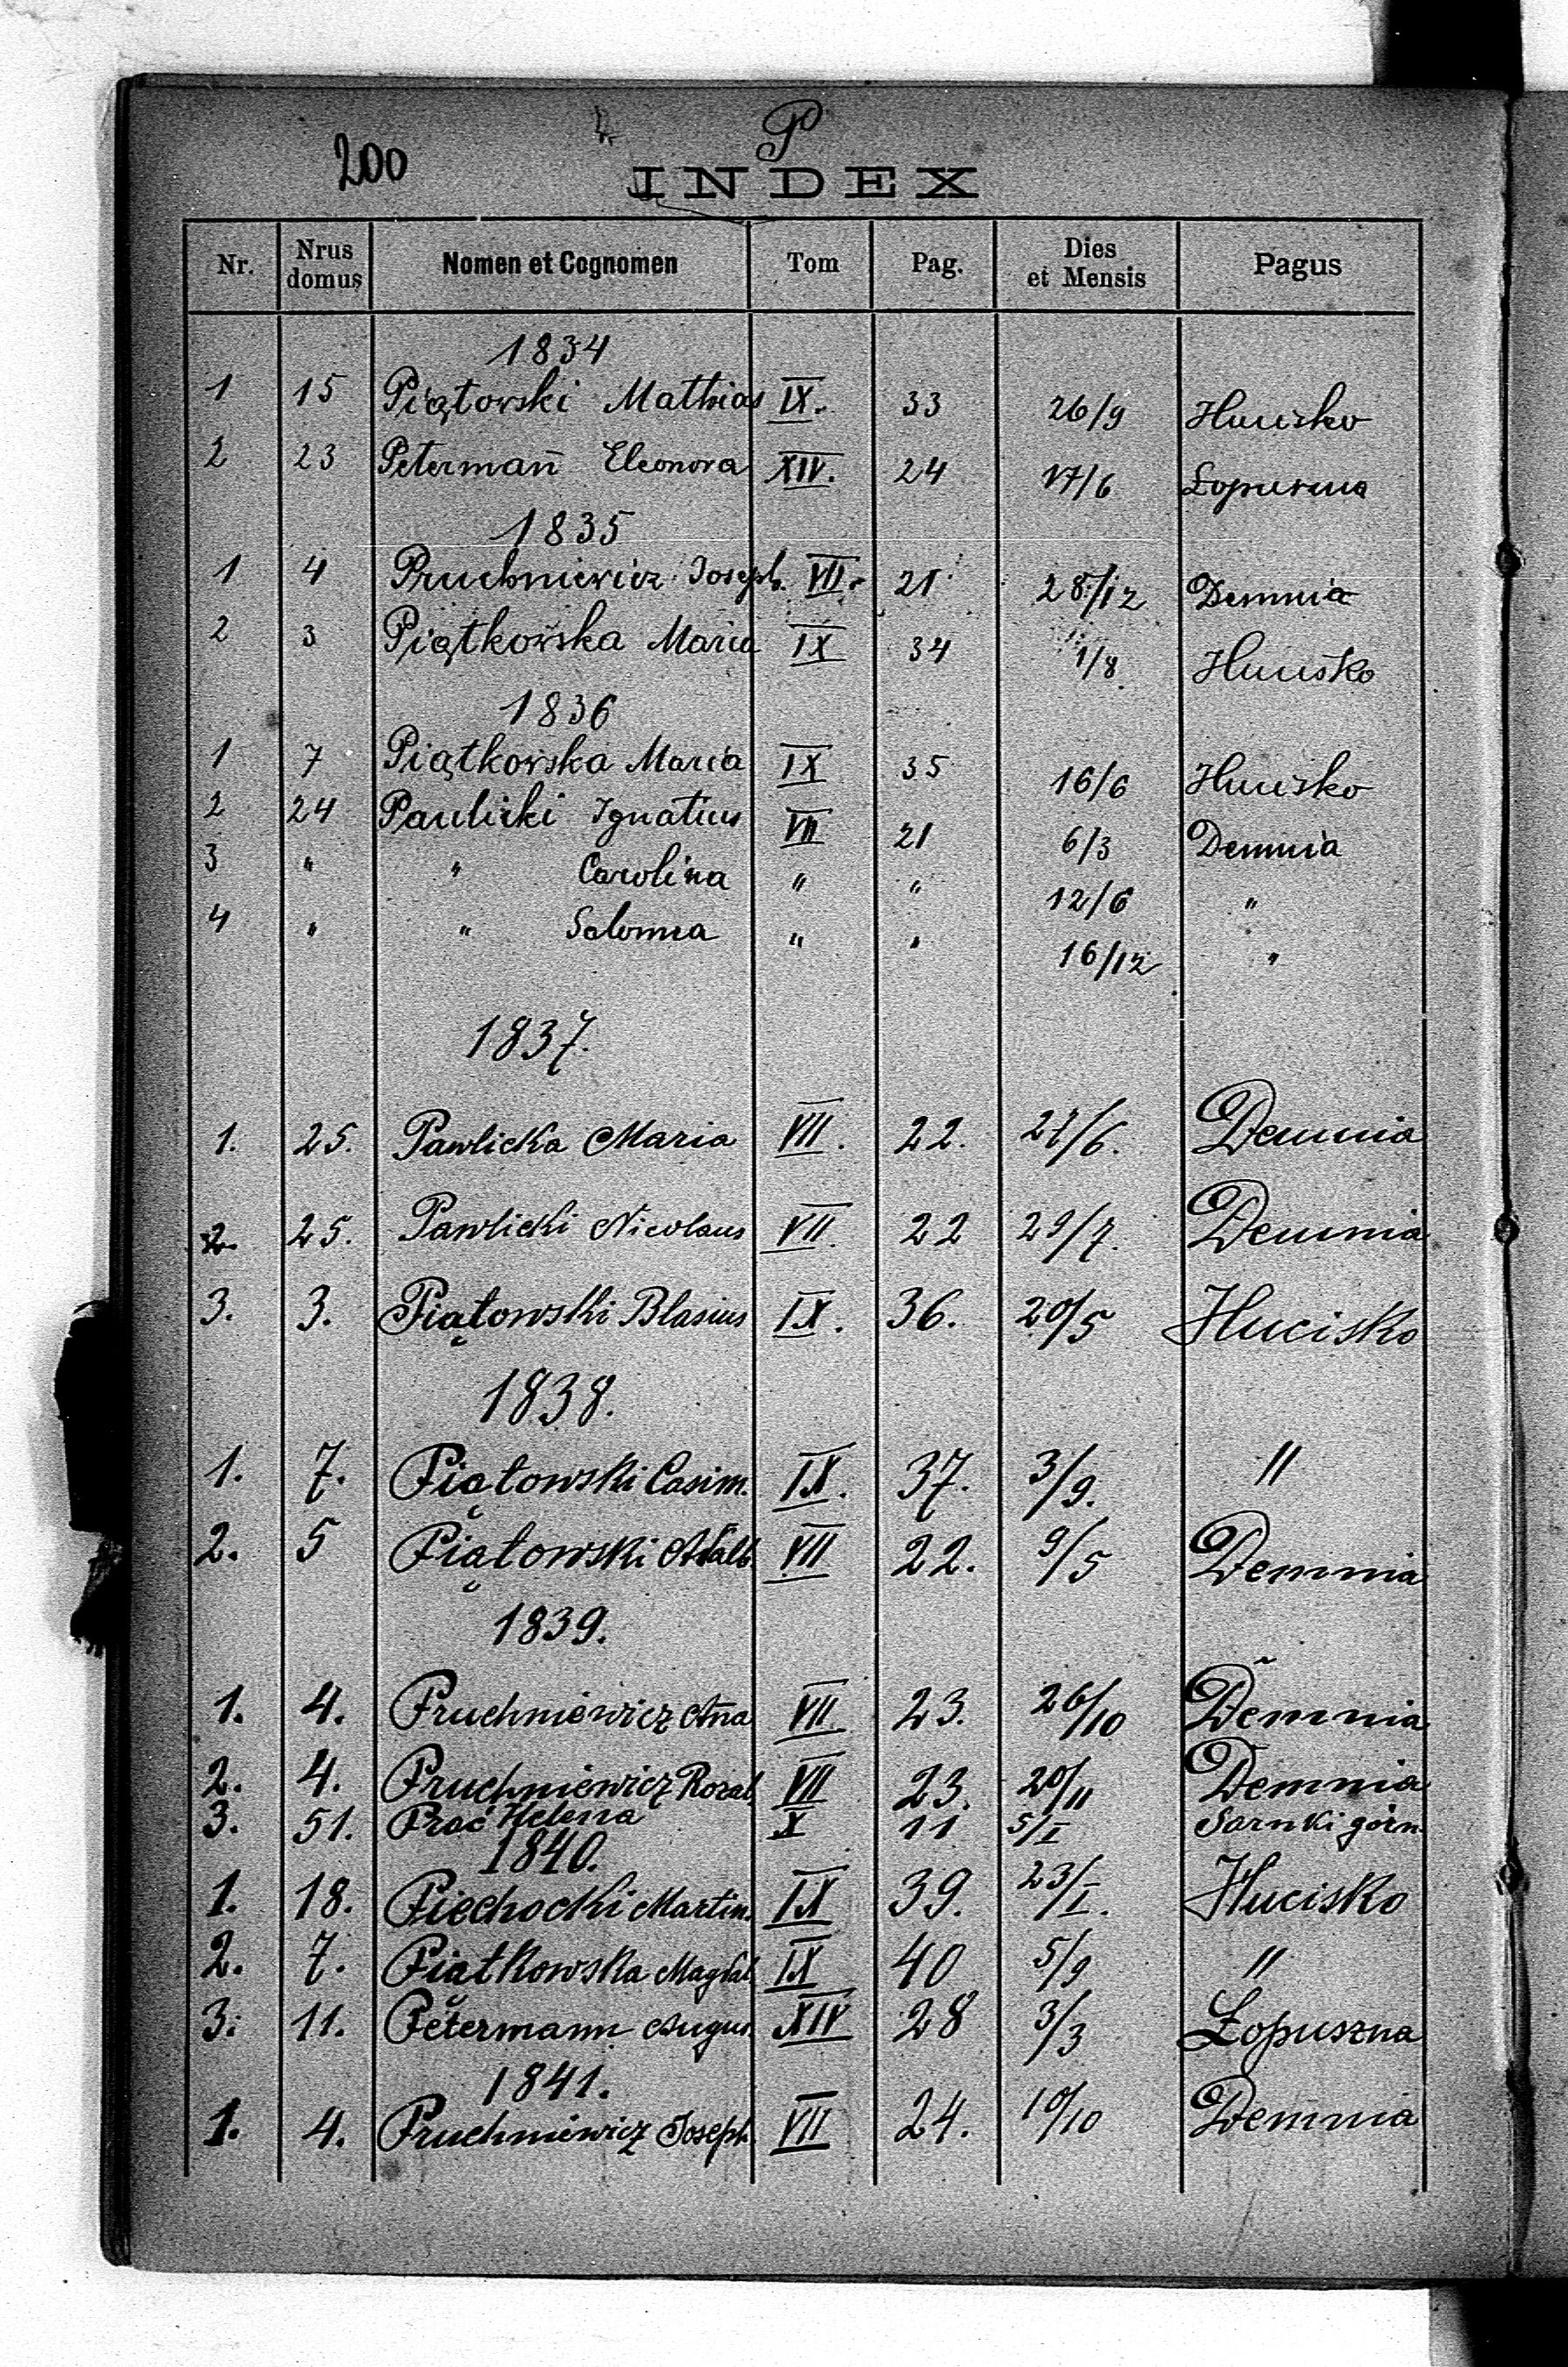 200
P
INDEX
Nr. Nrus domus Nomen et Cognomen Tom Pag. Dies et Mensis Pagus
1834
1 15 Piątowski Mathias IX. 33 26/9 Hucisko
2 23 Petermañ Eleonora XIV. 24 17/6 Łopuszna
1835
1 4 Pruchniewicz Joseph. VII. 21 28/12 Demnia
2 3 Piątkowska Maria IX 34 1/8 Hucisko
1836
1 7 Piątkowska Maria IX 35 16/6 Hucisko
2 24 Paulicki Ignatius VII 21 6/3 Demnia
3 " " Carolina " " 12/6 "
4 " " Salomea " " 16/12 "
1837.
1. 25. Pawlicka Maria VII. 22. 27/6. Demnia
2. 25. Pawlicki Nicolaus VII. 22 29/7. Demnia
3. 3. Piątowski Blasius IX. 36. 20/5 Hucisko
1838.
1. 7. Piątowski Casim. IX. 37. 3/9. "
2. 5 Piątowski Adalb VII 22. 9/5 Demnia
1839.
1. 4. Pruchniewicz Aña VII 23. 26/10 Demnia
2. 4. Pruchniewicz Rozal. VII 23. 20/11 Demnia
3. 51. Prać Helena X 11 5/I Sarnki górn.
1840.
1. 18. Piechocki Martin. IX 39. 23/I. Hucisko
2. 7. Piątkowska Magdal IX 40 5/9 "
3. 11. Petermann Augus. XIV 28 3/3 Łopuszna
1841.
1. 4. Pruchniewicz Joseph VII 24. 10/10 Demnia